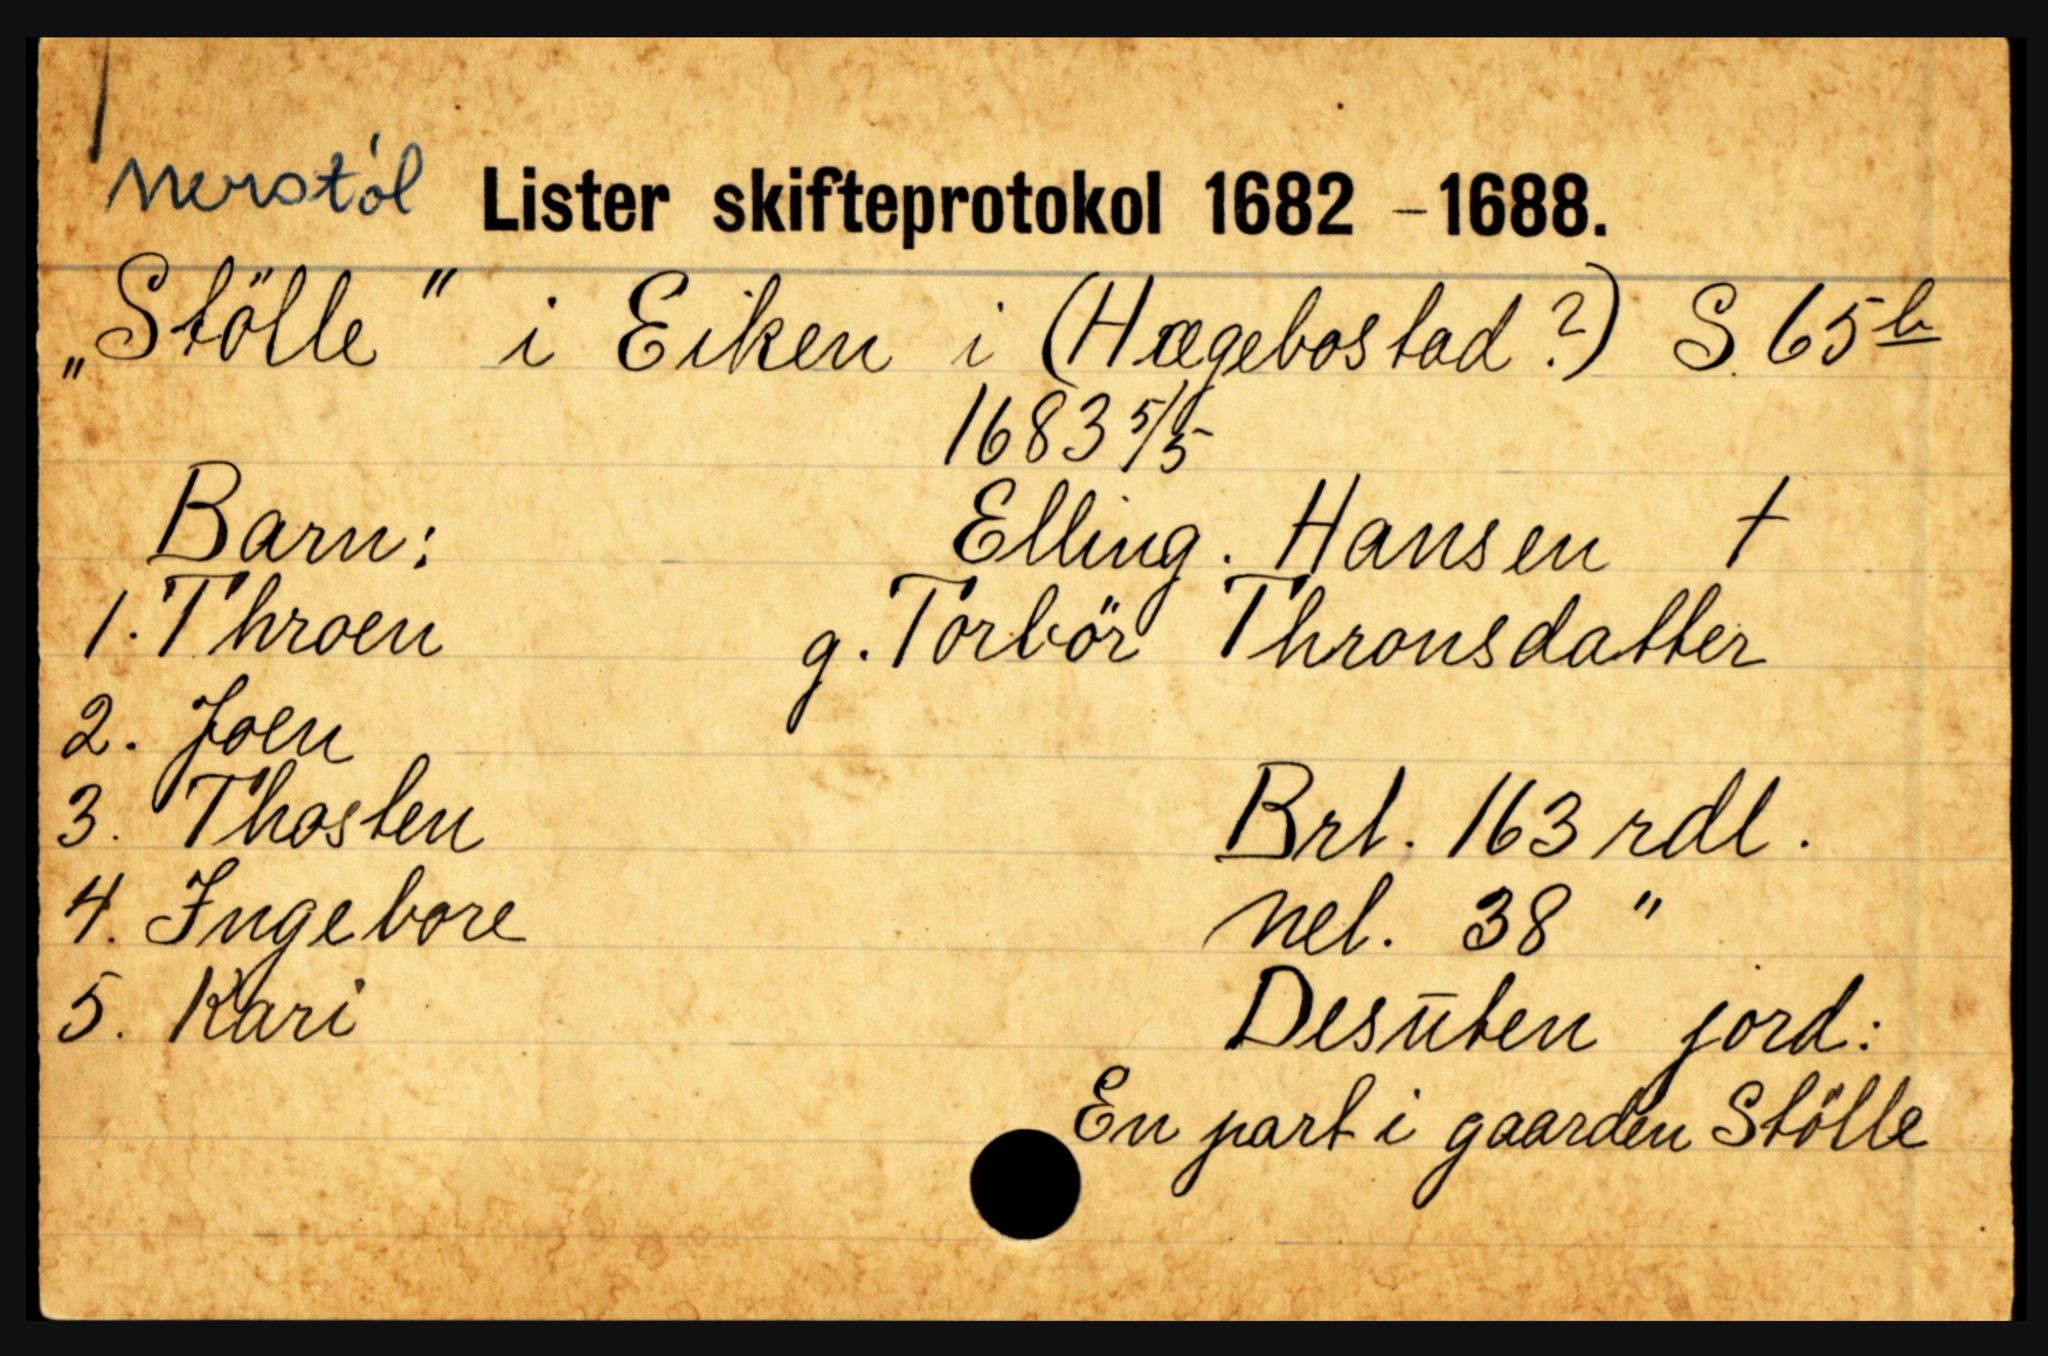 Nerstøl Lister skifteprotokol 1682 - 1688.
„Stölle" i Eiken i (Hægebostad?) S. 65b
1683 5/5
Barn: Elling. Hansen †
1. Throen g. Torbör Thronsdatter
2. Joen
3. Thosten Brt. 163 rdl.
4. Ingebore Net. 38 "
5. Kari Desūten jord:
En part i gaarden Stölle